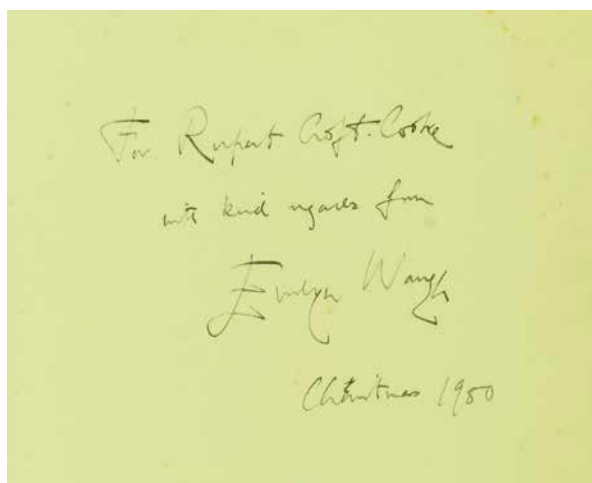 For Rupert Croft-Cooke
with kind regards from
Evelyn Waugh
Christmas 1950